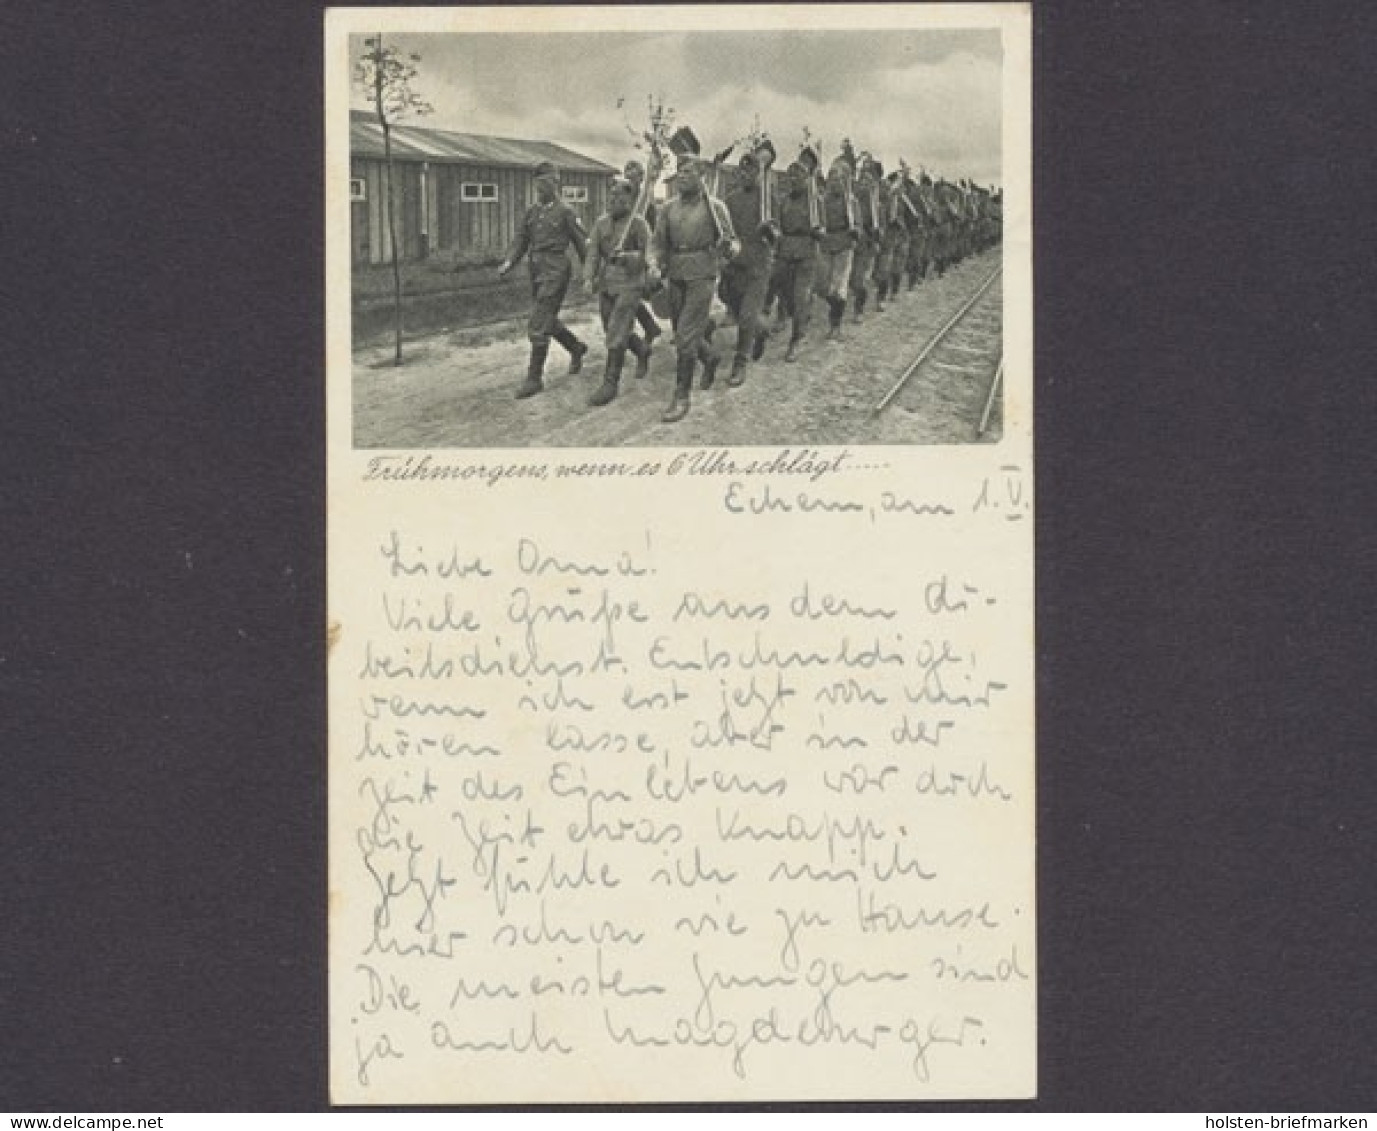 Frühmorgens, wenn es 6 Uhr schlägt.....
Echem, am 1. V.
Liebe Oma!
Viele Grüße aus dem Ar-
beitsdienst. Entschuldige,
wenn ich erst jetzt von mir
hören lasse, aber in der
Zeit des Einlebens war doch
die Zeit etwas knapp.
Jetzt fühle ich mich
hier schon wie zu Hause.
Die meisten Jungen sind
ja auch Magdeburger.
www.delcampe.net
holsten-briefmarken